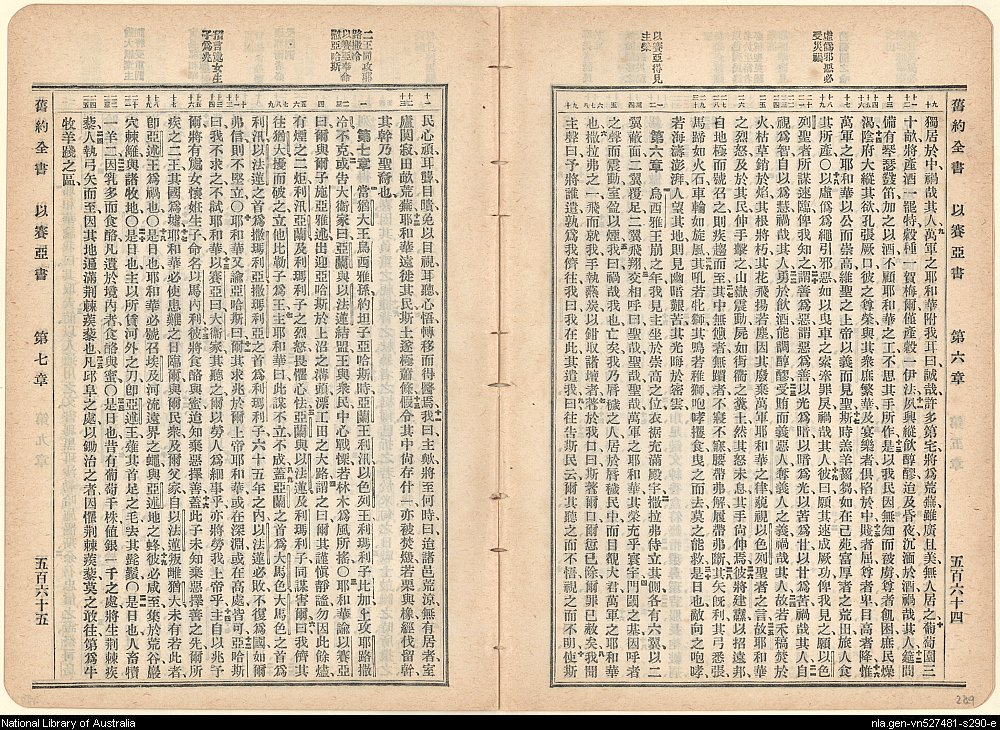 虛偽邪惡必
受災禍
以賽亞得見
主榮
舊約全書 以賽亞書 第六章 五百六十四
獨居於中禍哉其人萬軍之耶和華附我耳曰誠哉許多第宅將為荒蕪雖廣且美無人居之葡萄園三
十畝將產酒一罷特穀種一賀梅爾僅產穀一伊法〇夙興縱飲醇醪迨及昏夜沉湎於酒禍哉其人筵間
備有琴瑟鼗笛加之以酒不顧耶和華之工不思其手所作是以我民因無知而被虜尊者飢困庶民燥
渴陰府大縱其欲孔張厥口彼之尊榮與其羣庶繁華及宴樂者俱陷於中賤者屈尊者卑目高者降惟
萬軍之耶和華以公而崇高維聖之上帝以義而見聖斯時羔羊齧芻如在己處富厚者之荒田旅人食
其所產〇以虛偽為繩引邪惡如以曳車之索牽罪戾禍哉其人彼曰願其速成厥功俾我見之願以色
列聖者所謀速臨俾我知之謂善為惡謂惡為善以光為暗以暗為光以苦為甘以甘為苦禍哉其人自
視為智自以為慧禍哉其人勇於飲酒能調醇醪受賄而義惡人奪義人之義禍哉其人故若禾稿焚於
火枯草銷於焰其根將朽其花飛揚若塵因其廢棄萬軍耶和華之律藐視以色列聖者之言故耶和華
之烈怒及於其民伸手擊之山嶽震動屍如街衢之糞土然其怒未息其手尚伸焉彼將建纛以招遠邦
自地極而號召之則疾趨而至其中無憊者無躓者不寐不寢腰帶弗解履帶弗斷其矢旣利其弓悉張
馬蹄如火石車輪如旋風其吼若牝獅其鳴若稚獅咆哮攫食曳之而去莫之能救是日也敵向之咆哮
若海濤澎湃人望其地則見幽暗艱苦其光晦於密雲
第六章 烏西雅王崩之年我見主坐於崇高之位衣裾充滿殿宇撒拉弗侍立其側各有六翼以二
翼蔽面二翼覆足二翼飛翔交相呼曰聖哉聖哉聖哉萬軍之耶和華其榮充乎寰宇門閾之基因呼者
之聲而震動室盈以煙我曰禍哉我也亡矣我乃唇穢之人居於唇穢民中而目覩大君萬軍之耶和華
也撒拉弗之一飛而就我手執燕炭以鉗取諸壇者著於我口曰斯著爾口爾愆已除爾罪已蔽矣我聞
主聲曰予將誰遣孰為我儕往我曰我在此其遣我曰往告斯民云爾其聽之而不悟視之而不明使斯
二王同攻耶
路撒冷
以賽亞奉命
慰亞哈斯
預言處女生
子為兆
舊約全書 以賽亞書 第七章 五百六十五
民心頑耳聾目瞻免以目視耳聽心悟轉移而得醫焉我曰主歟將至何時曰迨諸邑荒涼無有居者室
廬闃寂田畝荒蕪耶和華遠徙其民斯土遂極蕭條假令其中尚存什一亦復焚燬若栗與橡經伐留幹
其幹乃聖裔也
第七章 當猶大王烏西雅孫約坦子亞哈斯時亞蘭王利汛以色列王利瑪利子比加上攻耶路撒
冷不克或告大衛家曰亞蘭與以法蓮結盟王與羣民中心戰慄若林木為風所搖〇耶和華諭以賽亞
曰爾與爾子施亞雅述出迎亞哈斯於上沼之溝頭漂工田之大路謂之曰爾其謹愼靜謐勿因此餘燼
有煙之二炬利汛亞蘭及利瑪利子之烈怒畏懼心怯亞蘭與以法蓮及利瑪利子同謀害爾曰我儕其
往猶大擾而破之立他比勒子為王主耶和華曰此謀不立不成蓋亞蘭之首為大馬色大馬色之首為
利汛以法蓮之首為撒瑪利亞撒瑪利亞之首為利瑪利子六十五年之內以法蓮必敗不復為國如爾
弗信則不堅立〇耶和華又諭亞哈斯曰爾其求兆於爾上帝耶和華或在深淵或在高處皆可亞哈斯
曰我不求之不試耶和華以賽亞曰大衛家其聽之爾以勞人為細事乎亦將勞我上帝乎主自以兆予
爾將有處女懷妊生子命名以馬內利彼將食酪與蜜迨知棄惡擇善蓋此子未知棄惡擇善之先爾所
疾之二王其國為墟耶和華必使患難之日臨爾與爾民衆及爾父家自以法蓮叛離猶大未有若此者
卽亞述王為禍也〇是日也耶和華必號召埃及河流遠界之蠅與亞述地之蜂彼必咸至集於荒谷巖
穴棘籬與諸牧地〇是日也主以所賃河外之刀卽亞述王薙其首足之毛去其髭鬚〇是日也人畜犢
一羊二因乳多而食酪凡遺於境內者食酪與蜜〇是日也昔有葡萄千株值銀一千之處將生荆棘蒺
藜人執弓矢而至因其地遍滿荆棘蒺藜也凡邱阜之處以鋤治之者因懼荆棘蒺藜莫之敢往第為牛
牧羊踐之區
National Library of Australia
nla.gen-vn527481-s290-e
289